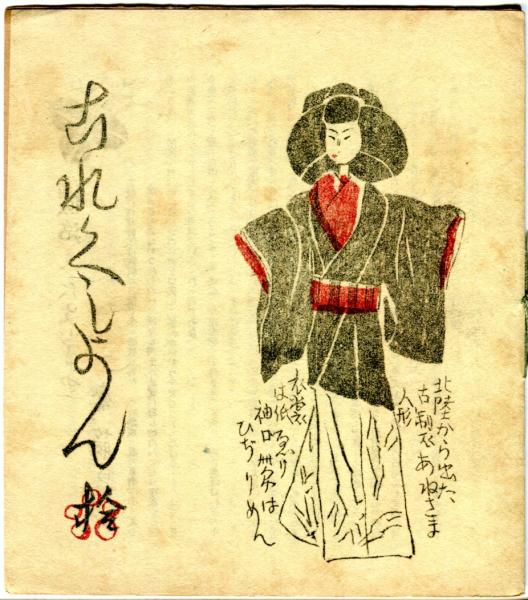 北陸から出た、
古製あねさま
人形
衣裳
は紙ゑり
袖口帯は
ひぢりめん
古れくしよん
拾